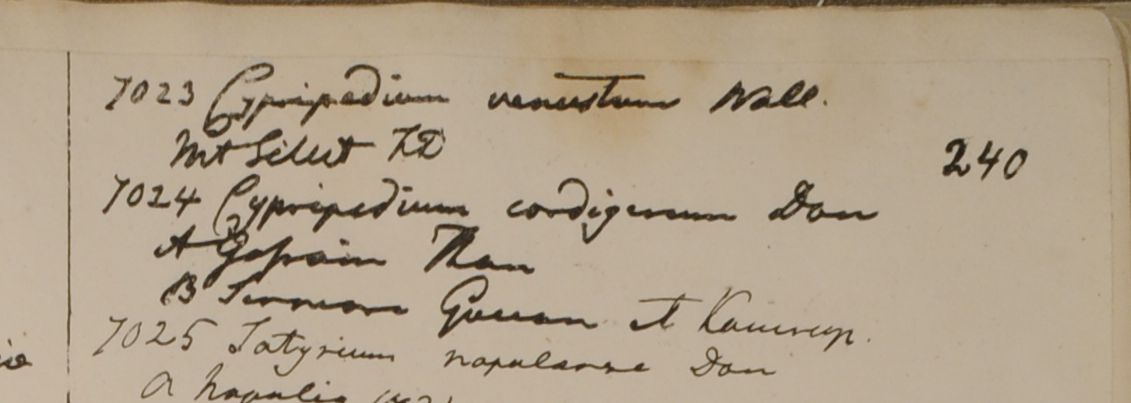 7023 Cypripedium venustum Wall.
Mt Silet FD
240
7024 Cypripedium cordigerum Don
A Gosain Than
B Sirmore Govan et Kamrup.
7025 Satyrium napalense Don
a Napalia